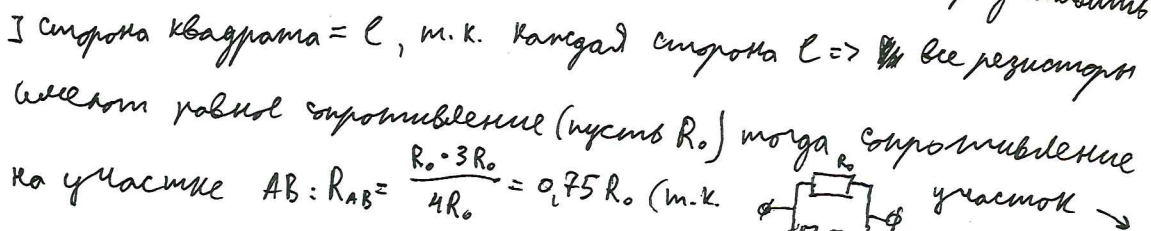 ] сторона квадрата = l, т.к. каждая сторона l => все резисторы
имеют равное сопротивление (пусть R₀) тогда сопротивление
на участке AB: R_AB = (R₀·3R₀)/(4R₀) = 0,75 R₀ (т.к. R₀ участок →